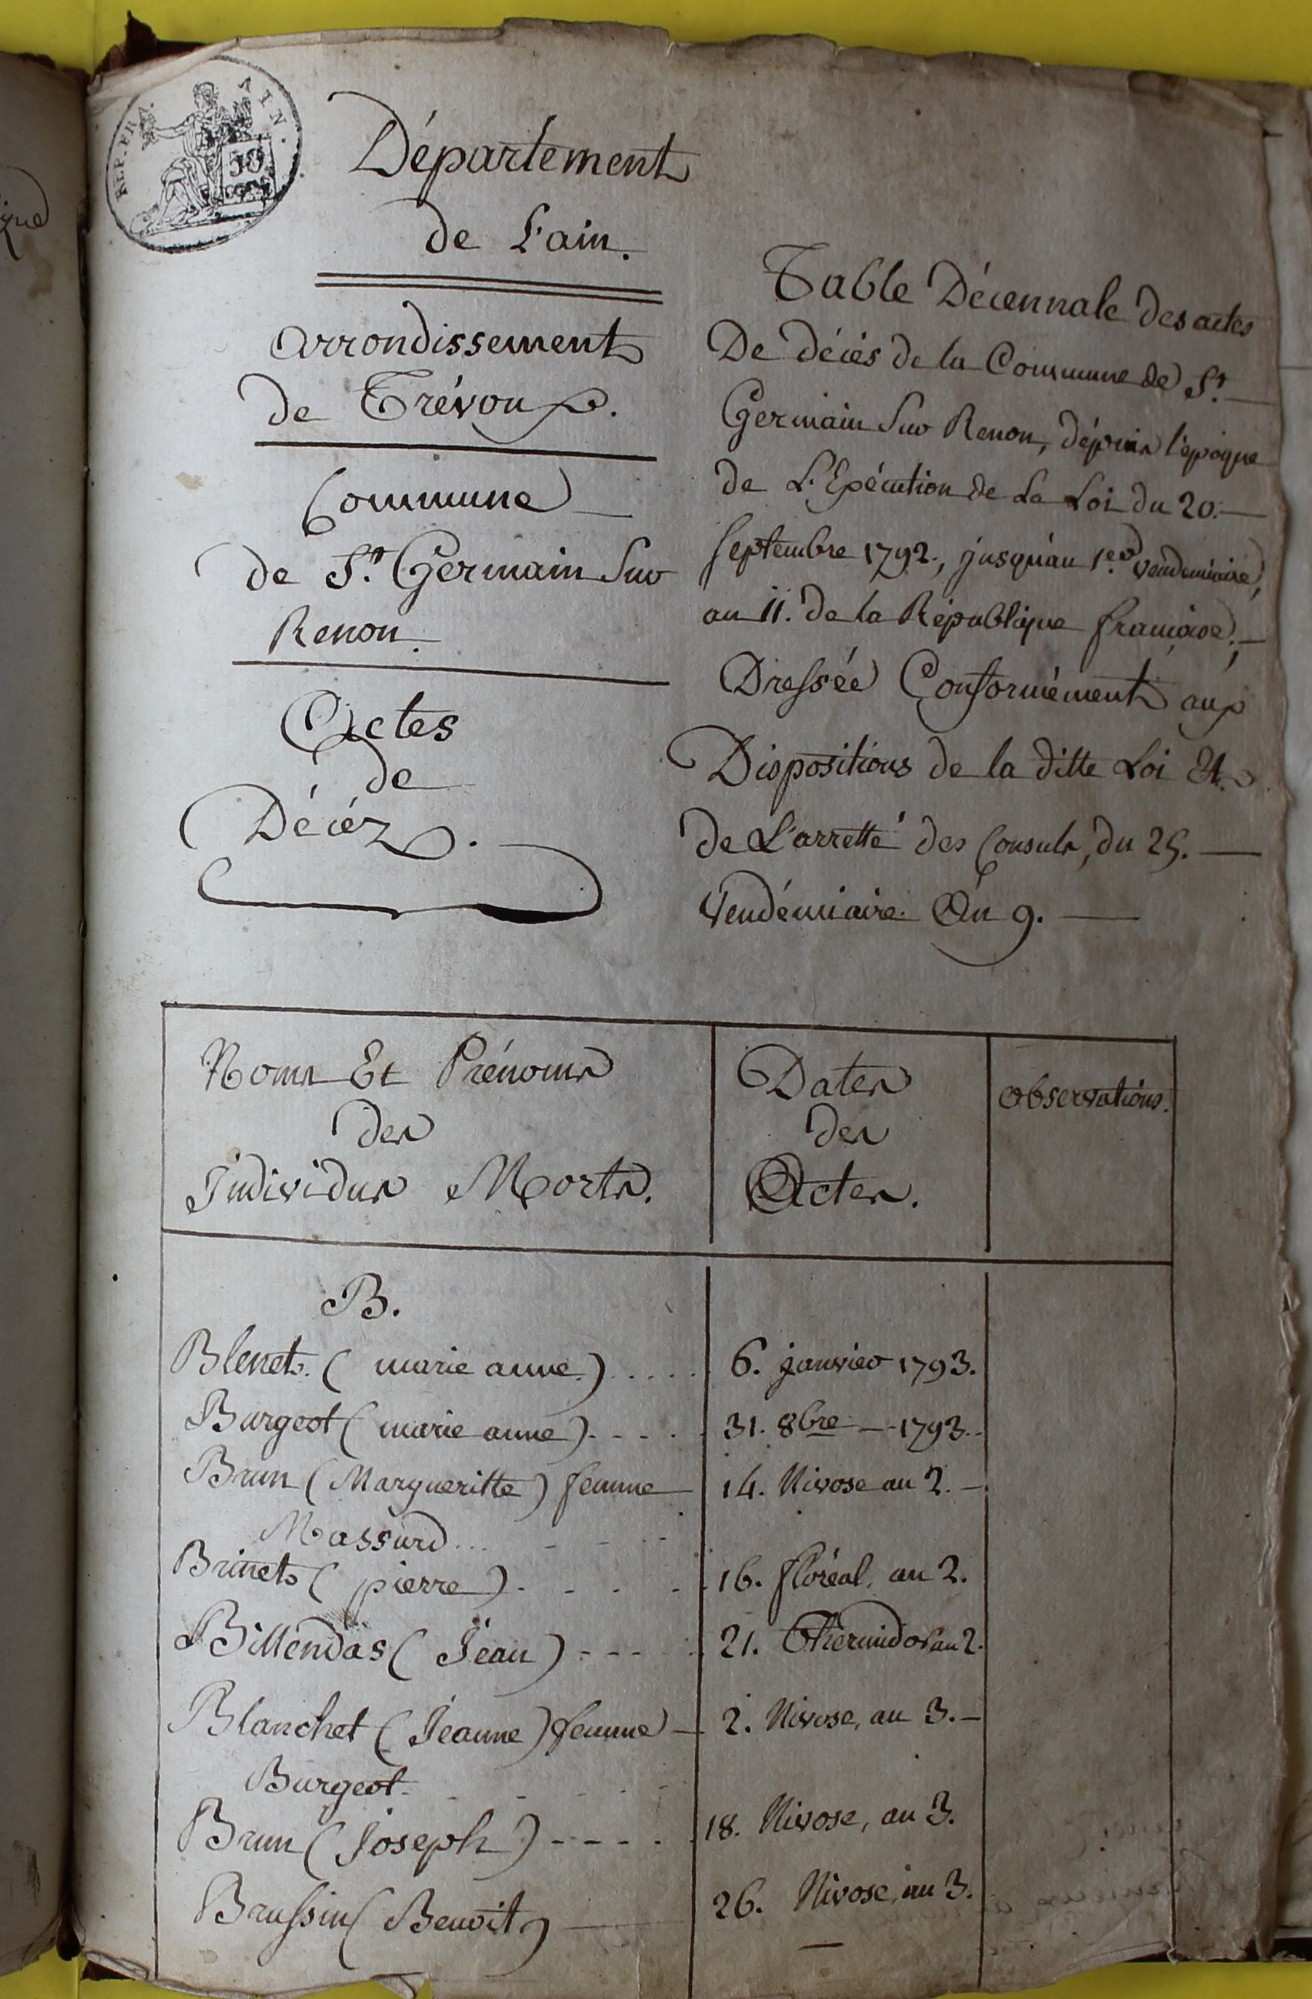 REP. FRA.
AIN.
50
Département
de L'ain.
arrondissement
de Trévoux.
Commune
de St. Germain Sur
Renon.
Actes
de
Décéz.
Table Décennale des actes
De décès de la Commune de St.
Germain Sur Renon, dépuis l'époque
de L'Exécution de La Loi du 20.
Septembre 1792., jusqu'au 1.er vendemiaire,
an 11. de la République française,
Dressée Conformément aux
Dispositions de la ditte Loi Et
de L'arretté des Consuls, du 25.
Vendémiaire An 9.
Noms Et Prénoms
des
Individus Morts.
Dates
des
Actes.
observations.
B.
Blenet (marie anne) 6. janvier 1793.
Burgeot (marie anne) 31. 8bre 1793.
Brun (Margueritte) femme 14. Nivose an 2.
Massard
Brinet (pierre) 16. floréal, an 2.
Billendas (Jéan) 21. Thérmidor an 2.
Blanchet (Jéanne) femme 2. Nivose, an 3.
Burgeot
Brun (Joseph) 18. Nivose, an 3.
Brussin (Benoit) 26. Nivose, an 3.